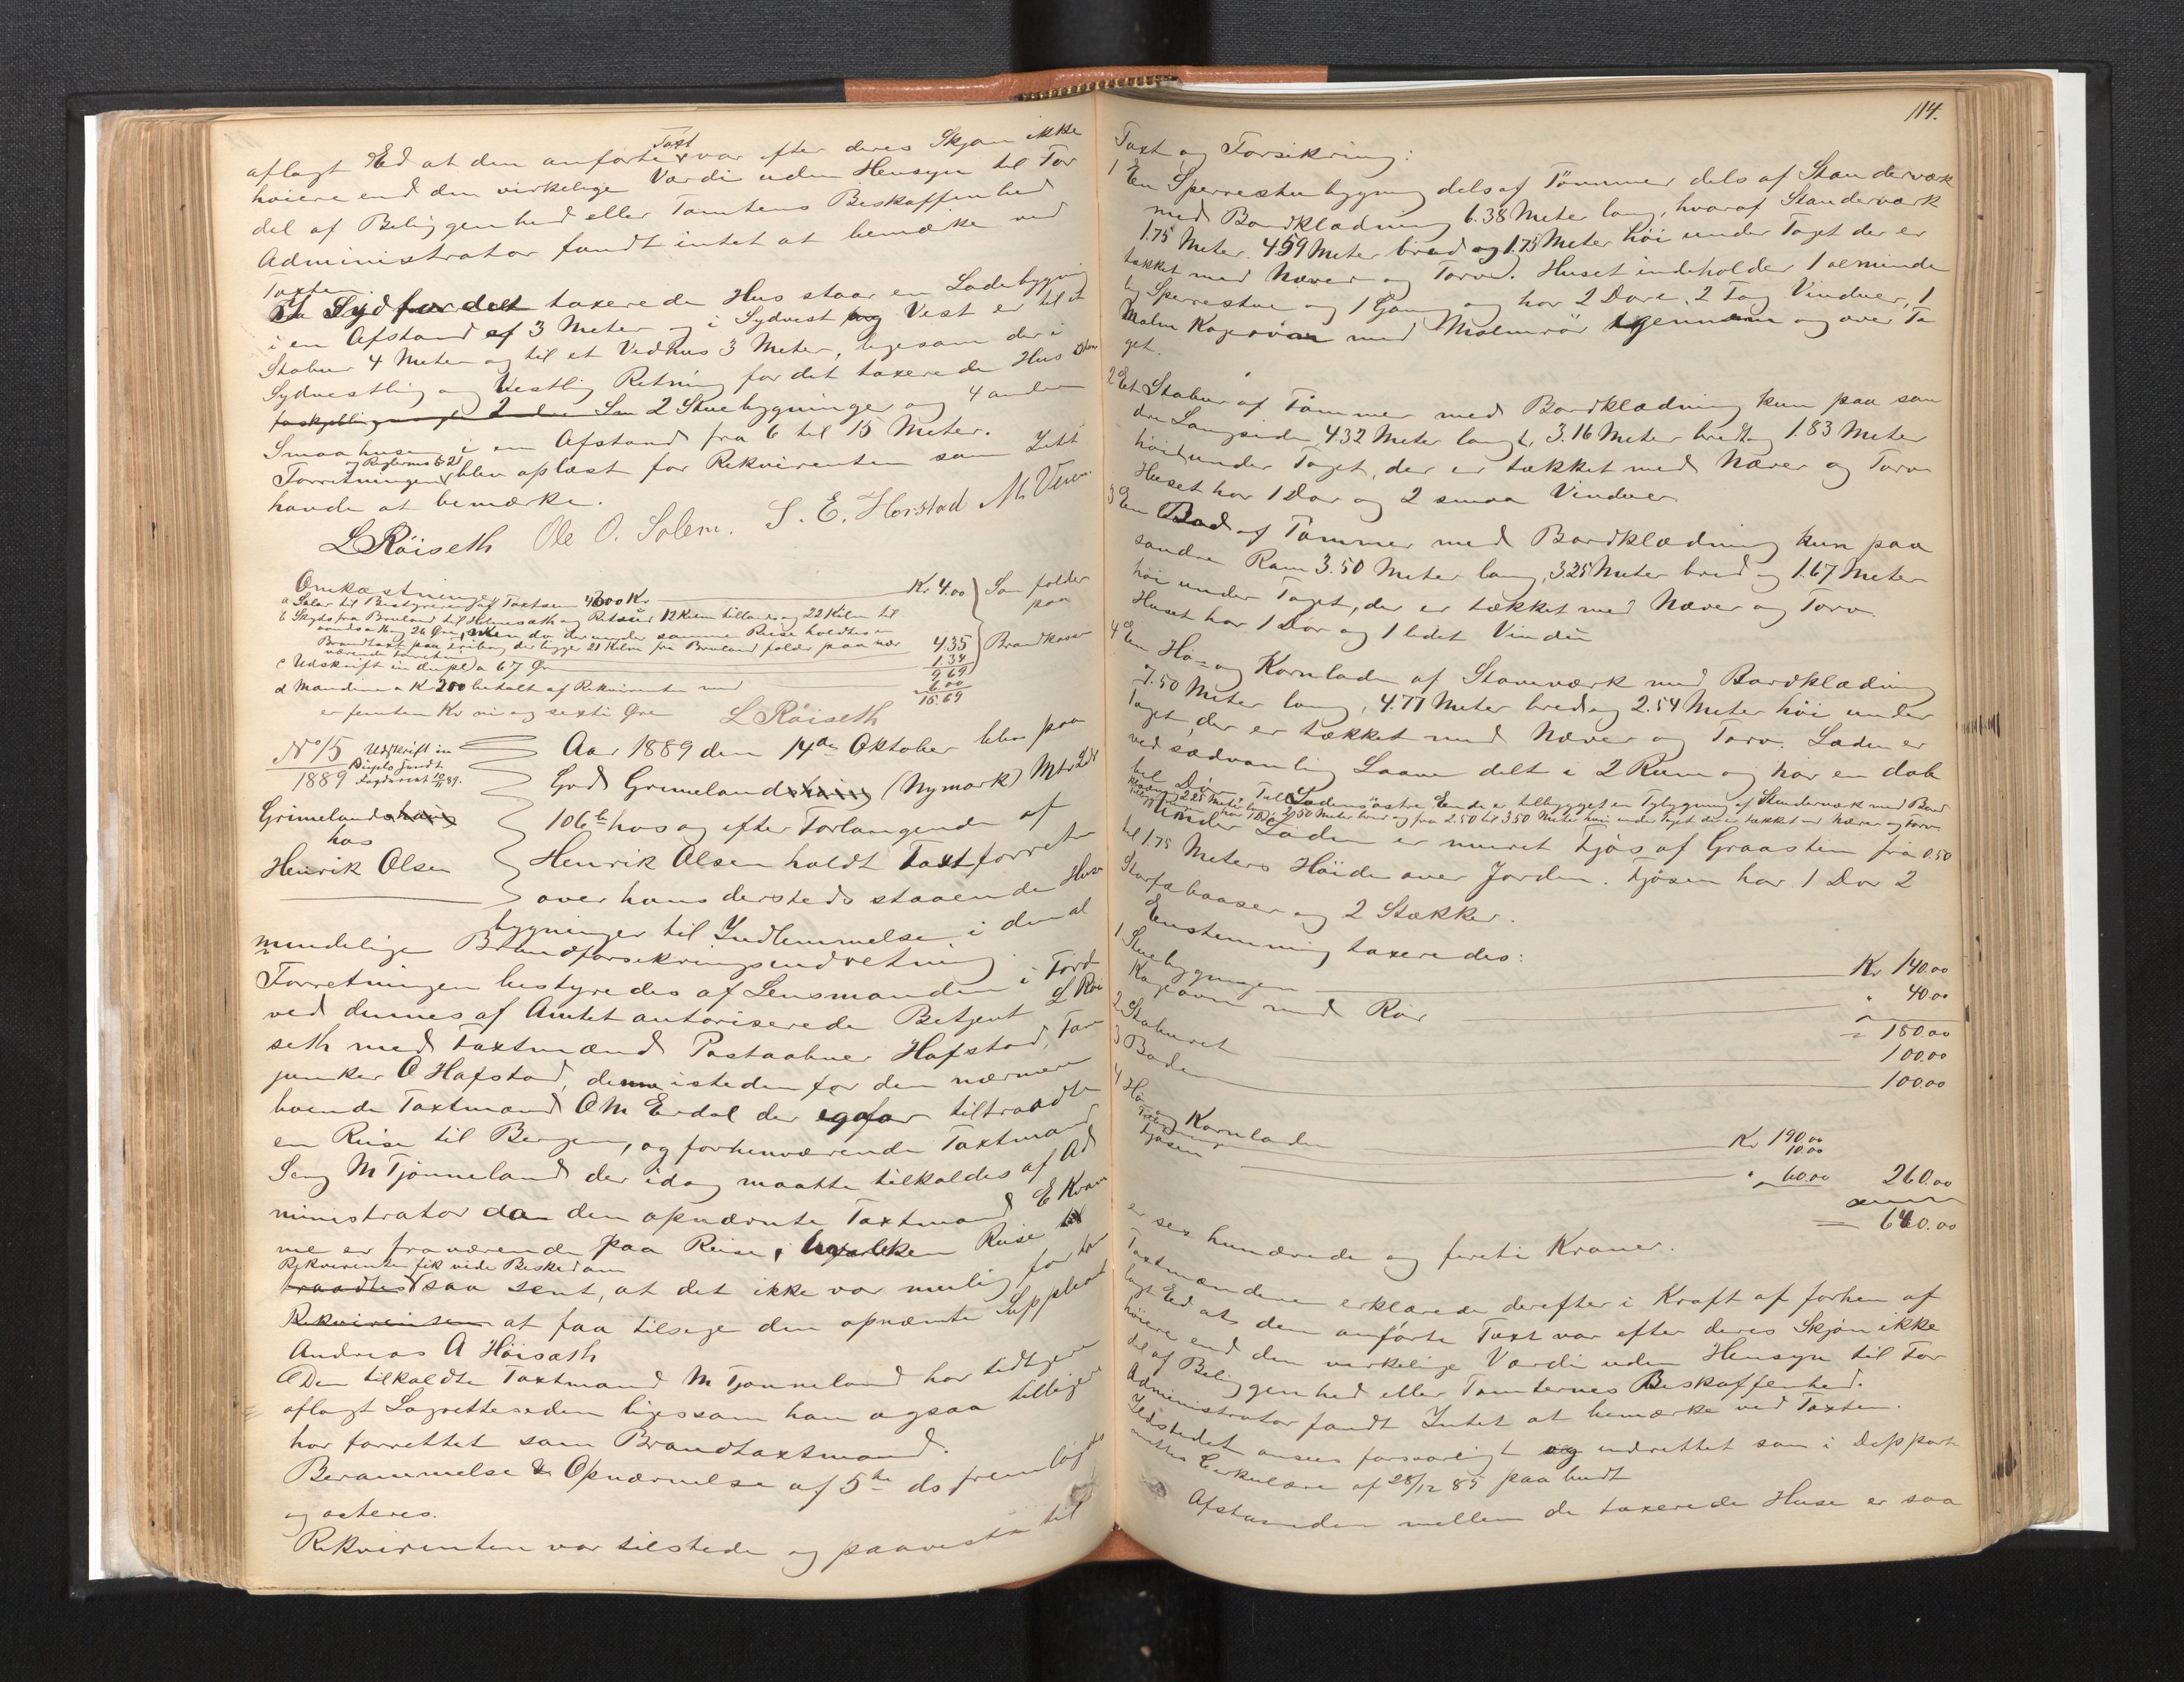 aflagt Ed at den anförte Taxt var efter deres Skjøn ikke
høiere end den virkelige Værdi uden Hensyn til For
del af Beliggenhed eller Tomtens Beskaffenhed
Administrator fandt intet at bemærke ved
Taxten.
I Syd for det taxerede Hus staar en Ladebygning
i en Afstand af 3 Meter og i Sydvest og Vest er til et
Stabur 4 Meter og til et Vedhus 3 Meter, ligesom der i
Sydvestlig og Vestlig Retning for det taxerede Hus
2 Stuebygninger og 4 andre
Smaahuse i en Afstand fra 6 til 15 Meter.
Forretningen og Reglernes § 21 blev oplæst for Rekvirenten som Intet
havde at bemærke.
L Röiseth Ole O. Solem. S. E. Horstad M. Veren
Omkostninger
a Salær til Bestyreren af Taxtsum 4300 Kr Kr 4.00
b Skyds fra Bruland til Holmesæth og Retour 12 Kilom tillands og 22 Kilm til
vands a Km 26 Øre, men da der under samme Reise holdtes en
Brandtaxt paa der ligger 21 Kilm fra Bruland falder paa nær
værende Forretning 4.35
c Udskrift in duplo a 67 Øre 1.34
9.69
d Mændene a Kr 2.00 betalt af Rekvirenten med 6.00
15.69
Som falder
paa
Brandkassen
er femten Kr ni og sexti Øre L Röiseth
No 15
1889
Udskrift in
Duplo sendt
Fogderiet 10/11 89.
Grimeland
hos
Henrik Olsen
Aar 1889 den 14de Oktober blev paa
Grd Grimeland (Nymark) Mtr Ldt
106 b hos og efter Forlangende af
Henrik Olsen holdt Taxtforretn
over hans dersteds staaende Huse
bygninger til Indlemmelse i den al
mindelige Brandforsikringsindretning.
Forretningen bestyredes af Lensmanden i Förde
ved dennes af Amtet autoriserede Betjent L Röi
seth med Taxtmænd Postaabner Hafstad, Fan
junker O Hafstad, denne istedenfor den nærmere
boende Taxtmand O M Erdal der igaar tiltraadte
en Reise til Bergen, og forhenværende Taxtmand
Serg M Tjønneland der idag maatte tilkaldes af Ad
ministrator da den opnævnte Taxtmand E Kvam
me er fraværende paa Reise, hvilken Reise
Rekvirenten fik vide Besked om
traadtes saa sent, at det ikke var mulig for ham
Rekvirenten at faa tilsige den opnævnte Suppleant
Andreas A Höisæth
Den tilkaldte Taxtmand M Tjønneland har tidligere
aflagt Lagretteseden ligesom han ogsaa tilligere
har forrettet som Brandtaxtmand.
Berammelse & Opnævnelse af 5te ds fremlagdes
og acteres.
Rekvirenten var tilstede og paaviste til
114.
Taxt og Forsikring:
1 En Sperrestuebygning dels af Tömmer dels af Standerværk
med Bordklædning 6.38 Meter lang, hvoraf Standerværk
1.75 Meter. 4.59 Meter bred og 1.75 Meter höi under Taget der er
tækket med Næver og Torv. Huset indeholder 1 alminde
lig Sperrestue og 1 Gang og har 2 Döre, 2 Fag Vinduer, 1
Malm Kogeovn med Malmrör igjennem og over Ta
get.
2 Et Stabur af Tömmer med Bordklædning kun paa søn
dre Langside 4.32 Meter langt, 3.16 Meter bredt og 1.83 Meter
höit under Taget, der er tækket med Næver og Torv
Huset har 1 Dør og 2 smaa Vinduer
3 En Bod af Tömmer med Bordklædning kun paa
søndre Ram 3.50 Meter lang, 3.25 Meter bred og 1.67 Meter
höi under Taget, der er tækket med Næver og Torv.
Huset har 1 Dør og 1 lidet Vindu
4 En Hö- og Kornlade af Stavværk med Bordklædning
7.50 Meter lang, 4.77 Meter bred og 2.54 Meter höi under
Taget der er tækket med Næver og Torv. Laden er
ved sædvanlig Laave delt i 2 Rum og har en dob
bel Dör. Til Ladens östre Ende er tilbygget en Tilbygning af Standerværk med Bord
klædning 2.25 Meter lang 2.50 Meter bred og fra 2.50 til 3.50 Meter höi under Taget der er tækket med Næver og Torv
Under Laden er muret Fjös af Graasten fra 0.50
til 1.75 Meters Höide over Jorden. Fjösen har 1 Dør 2
Storfæbaaser og 2 Stækker.
Enstemmig taxeredes:
1 Stuebygningen Kr 140.00
Kogeovn med Rör " 40.00
= 180.00
2 Staburet 100.00
3 Boden 100.00
4 Hö- og Kornladen Kr 190.00
Tilbygningen 10.00
Fjösen " 60.00 260.00
= 640.00
er sex hundrede og fireti Kroner.
Taxtmændene erklærede derefter i Kraft af forhen af
lagt Ed at den anförte Taxt var efter deres Skjøn ikke
höiere end den virkelige Værdi uden Hensyn til For
del af Beliggenhed eller Tomternes Beskaffenhed.
Administrator fandt Intet at bemærke ved Taxten.
Ildstedet ansees forsvarligt og indrettet som i Departe
mentets Cirkulære af 28/12 85 paabudt
Afstanden mellem de taxerede Huse er saa